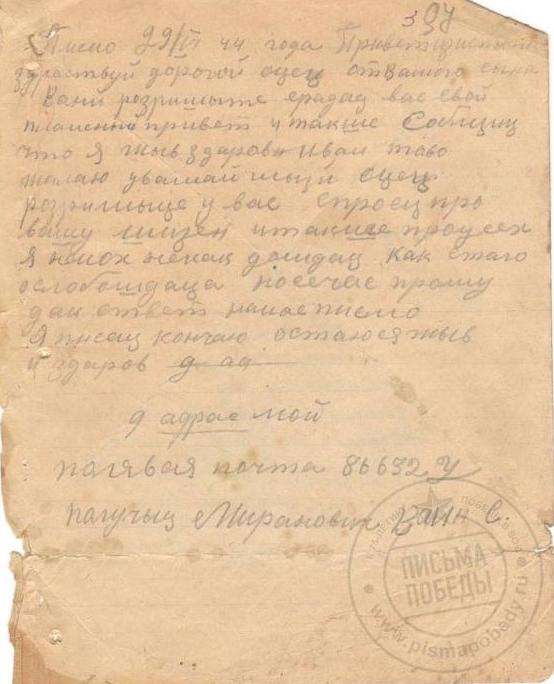 3 97
Писмо 29/IV 44 года Привет
здраствуй дорогой оцец от Вашого сына
Вани розришыте ерадац вас свой
пламеный привет и такше Собщиц
что я жыв здаров и Вам таво
желаю уважаймыи оцец
розришыце у вас спросец про
вашу шизен и такше про усех
Я немох некац дождац как
ослобождаца посечас прошу
дац ответ на мое писмо
Я писац кончаю остаюся жыв
и здаров д ад
д адрас мой
палявая почта 86632 У
палучыц Миранович Ваин С.
ПИСЬМА
ПОБЕДЫ
www.pismapobedy.ru